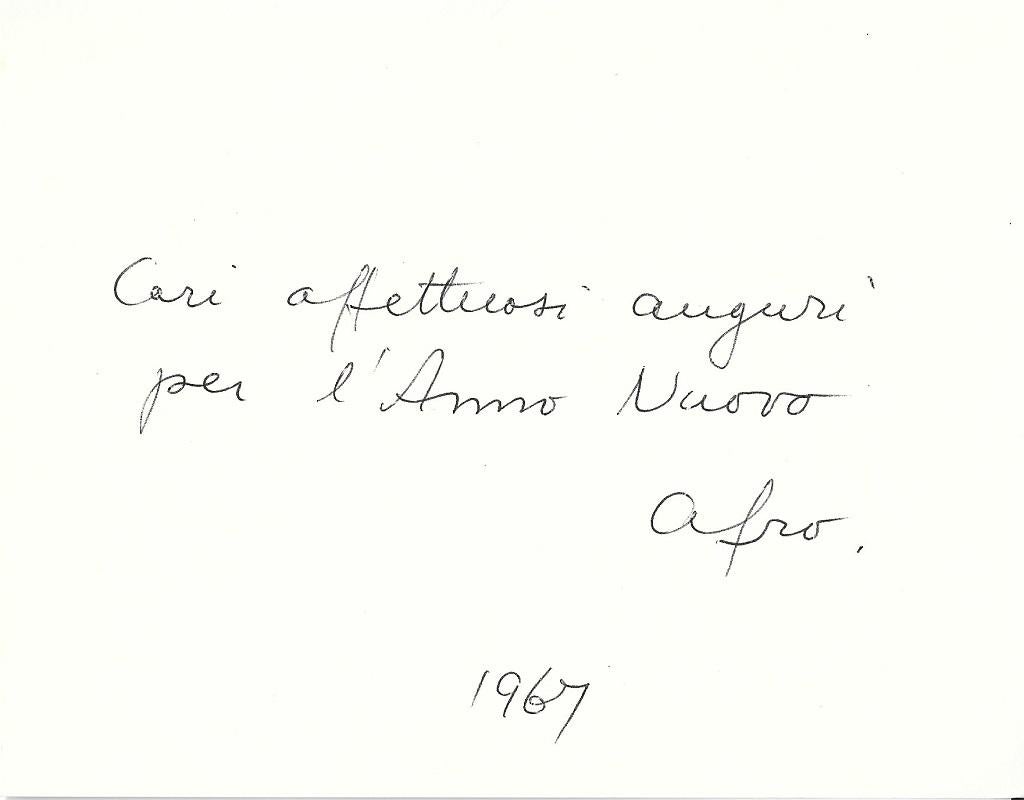 Cari affettuosi auguri
per l'Anno Nuovo
Afro.
1967